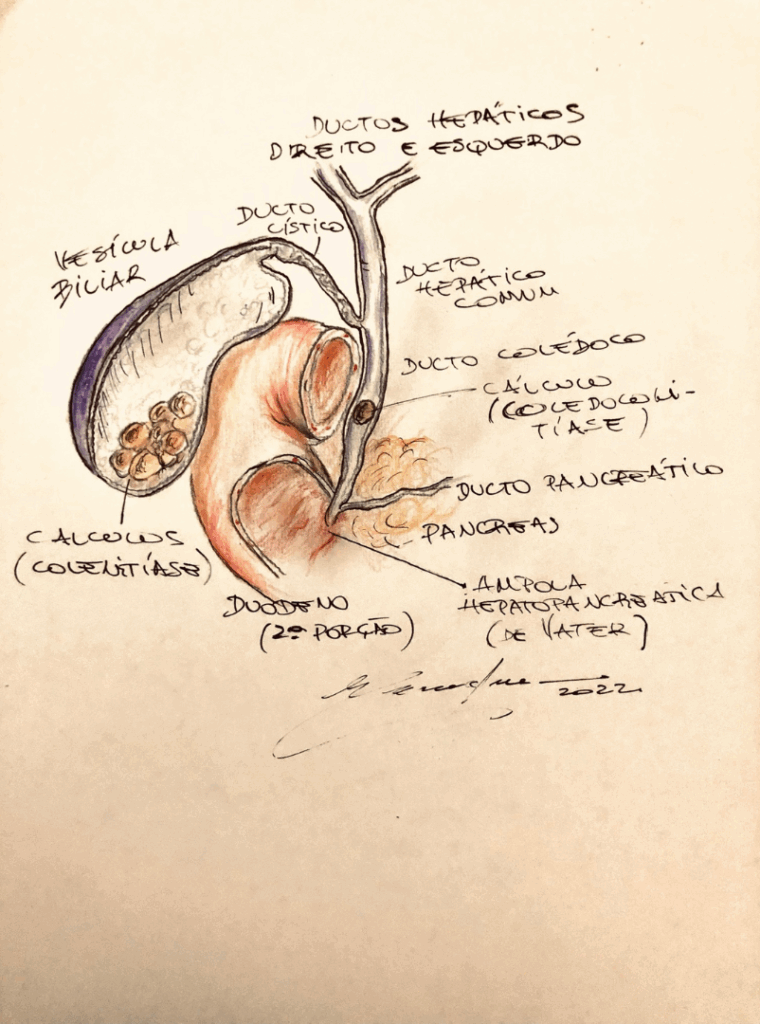 DUCTOS HEPÁTICOS
DIREITO E ESQUERDO
DUCTO
CÍSTICO
VESÍCULA
BILIAR
DUCTO
HEPÁTICO
COMUM
DUCTO COLÉDOCO
CÁLCULO
(COLEDOCOLI-
TÍASE)
DUCTO PANCREÁTICO
PANCREAS
CALCULOS
(COLELITÍASE)
AMPOLA
HEPATOPANCREATICA
(DE VATER)
DUODENO
(2ª PORÇÃO)
2022